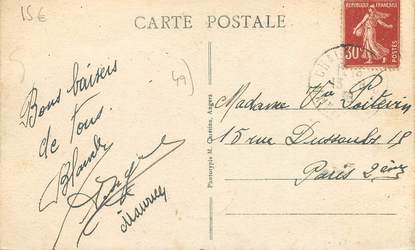 15€
CARTE POSTALE
RÉPUBLIQUE FRANÇAISE
30c
POSTES
49
Bons baisers
de tous.
Maurice
Phototypie M. Quesins, Angers
Madame Poitevin
15 rue Dussoubs 15
Paris 2ème